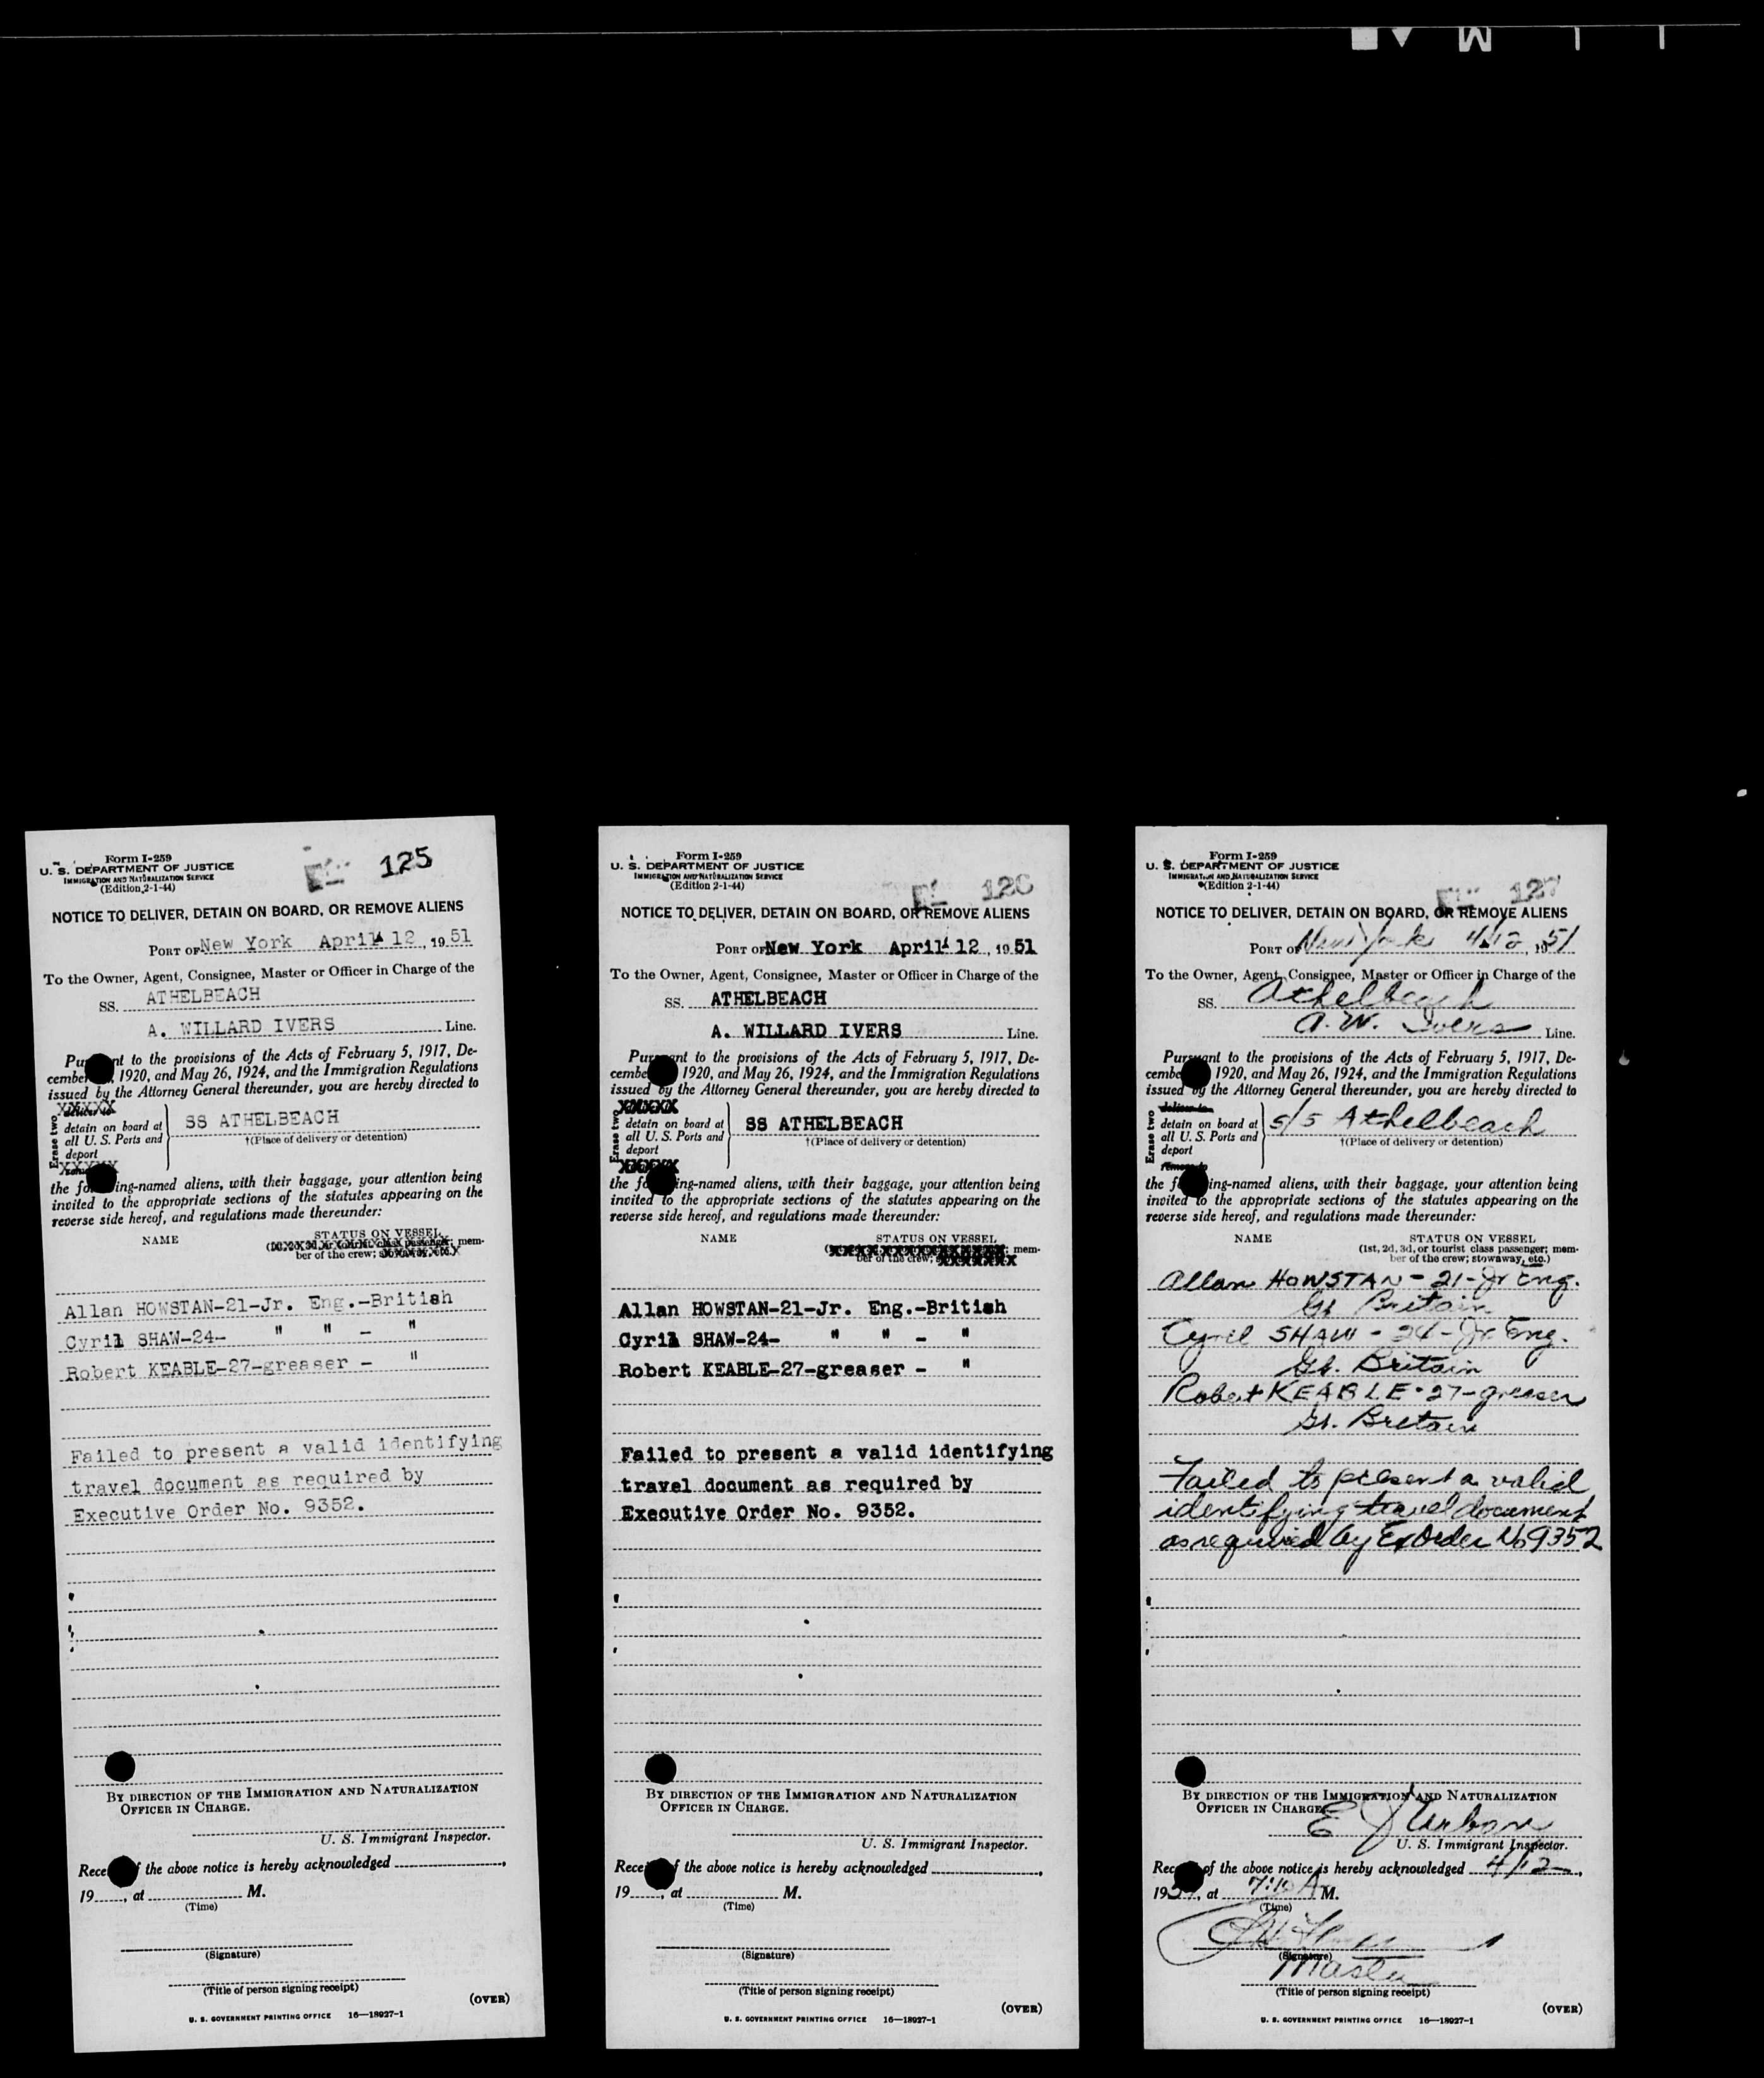 Form I-259
U. S. DEPARTMENT OF JUSTICE
IMMIGRATION AND NATURALIZATION SERVICE
(Edition 2-1-44)
125
NOTICE TO DELIVER, DETAIN ON BOARD, OR REMOVE ALIENS
PORT OF New York April 12, 1951
To the Owner, Agent, Consignee, Master or Officer in Charge of the
SS. ATHELBEACH
A. WILLARD IVERS Line.
Pu nt to the provisions of the Acts of February 5, 1917, De-
cember , 1920, and May 26, 1924, and the Immigration Regulations
issued by the Attorney General thereunder, you are hereby directed to
Erase two
XXXXX
detain on board at
all U. S. Ports and
deport
XXXXX
SS ATHELBEACH
†(Place of delivery or detention)
the fo ing-named aliens, with their baggage, your attention being
invited to the appropriate sections of the statutes appearing on the
reverse side hereof, and regulations made thereunder:
NAME STATUS ON VESSEL
mem-
ber of the crew;
Allan HOWSTAN-21-Jr. Eng.-British
Cyril SHAW-24- " " - "
Robert KEABLE-27-greaser - "
Failed to present a valid identifying
travel document as required by
Executive Order No. 9352.
BY DIRECTION OF THE IMMIGRATION AND NATURALIZATION
OFFICER IN CHARGE.
U. S. Immigrant Inspector.
Rece f the above notice is hereby acknowledged ,
19 , at M.
(Time)
(Signature)
(Title of person signing receipt)
(OVER)
U. S. GOVERNMENT PRINTING OFFICE 16—18927-1
Form I-259
U. S. DEPARTMENT OF JUSTICE
IMMIGRATION AND NATURALIZATION SERVICE
(Edition 2-1-44)
126
NOTICE TO DELIVER, DETAIN ON BOARD, OR REMOVE ALIENS
PORT OF New York April 12, 1951
To the Owner, Agent, Consignee, Master or Officer in Charge of the
SS. ATHELBEACH
A. WILLARD IVERS Line.
Pursuant to the provisions of the Acts of February 5, 1917, De-
cembe 1920, and May 26, 1924, and the Immigration Regulations
issued by the Attorney General thereunder, you are hereby directed to
Erase two
XXXXX
detain on board at
all U. S. Ports and
deport
XXXXX
SS ATHELBEACH
†(Place of delivery or detention)
the fo ing-named aliens, with their baggage, your attention being
invited to the appropriate sections of the statutes appearing on the
reverse side hereof, and regulations made thereunder:
NAME STATUS ON VESSEL
mem-
ber of the crew;
Allan HOWSTAN-21-Jr. Eng.-British
Cyril SHAW-24- " " - "
Robert KEABLE-27-greaser - "
Failed to present a valid identifying
travel document as required by
Executive Order No. 9352.
BY DIRECTION OF THE IMMIGRATION AND NATURALIZATION
OFFICER IN CHARGE.
U. S. Immigrant Inspector.
Rece f the above notice is hereby acknowledged ,
19 , at M.
(Time)
(Signature)
(Title of person signing receipt)
(OVER)
U. S. GOVERNMENT PRINTING OFFICE 16—18927-1
Form I-259
U. S. DEPARTMENT OF JUSTICE
IMMIGRATION AND NATURALIZATION SERVICE
(Edition 2-1-44)
127
NOTICE TO DELIVER, DETAIN ON BOARD, OR REMOVE ALIENS
PORT OF New York 4/12, 1951
To the Owner, Agent, Consignee, Master or Officer in Charge of the
SS. Athelbeach
A. W. Ivers Line.
Pursuant to the provisions of the Acts of February 5, 1917, De-
cembe 1920, and May 26, 1924, and the Immigration Regulations
issued by the Attorney General thereunder, you are hereby directed to
Erase two
deliver to
detain on board at
all U. S. Ports and
deport
remove to
S/S Athelbeach
†(Place of delivery or detention)
the f ing-named aliens, with their baggage, your attention being
invited to the appropriate sections of the statutes appearing on the
reverse side hereof, and regulations made thereunder:
NAME STATUS ON VESSEL
(1st, 2d, 3d, or tourist class passenger; mem-
ber of the crew; stowaway, etc.)
Allan HOWSTAN - 21 - Jr Eng.
Gt. Britain
Cyril SHAW - 24 - Jr Eng.
Gt. Britain
Robert KEABLE - 27 - greaser
Gt. Britain
Failed to present a valid
identifying travel document
as required by Ex Order No 9352
BY DIRECTION OF THE IMMIGRATION AND NATURALIZATION
OFFICER IN CHARGE.
E
U. S. Immigrant Inspector.
Rec of the above notice is hereby acknowledged 4/12,
1951, at 7:10 A M.
(Time)
(Signature)
Master
(Title of person signing receipt)
(OVER)
U. S. GOVERNMENT PRINTING OFFICE 16—18927-1